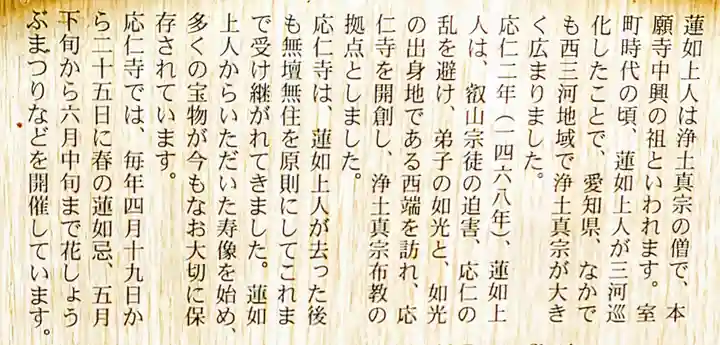 蓮如上人は浄土真宗の僧で、本
願寺中興の祖といわれます。室
町時代の頃、蓮如上人が三河巡
化したことで、愛知県、なかで
も西三河地域で浄土真宗が大き
く広まりました。
応仁二年（一四六八年）、蓮如上
人は、叡山宗徒の迫害、応仁の
乱を避け、弟子の如光と、如光
の出身地である西端を訪れ、応
仁寺を開創し、浄土真宗布教の
拠点としました。
応仁寺は、蓮如上人が去った後
も無壇無住を原則にしてこれま
で受け継がれてきました。蓮如
上人からいただいた寿像を始め、
多くの宝物が今もなお大切に保
存されています。
応仁寺では、毎年四月十九日か
ら二十五日に春の蓮如忌、五月
下旬から六月中旬まで花しょう
ぶまつりなどを開催しています。